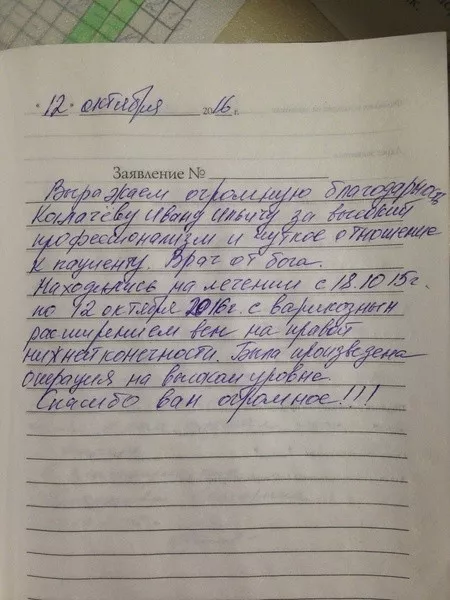 "12" октября 2016 г.
Заявление №
Выражаем огромную благодарность
Колпачёву Ивану Ильичу за высокий
профессионализм и чуткое отношение
к пациенту. Врач от бога.
Находились на лечении с 18.10 15г.
по 12 октября 2016г. с варикозным
расширением вен на правой
нижней конечности. Была произведена
операция на высоком уровне.
Спасибо вам огромное!!!